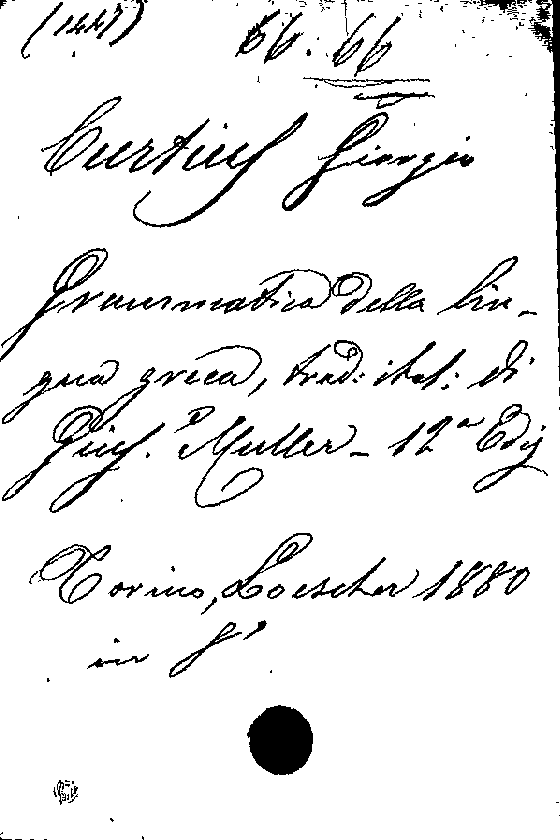 66.66
Curtius Giorgio
Grammatica della lin-
gua greca, trad: ital: di
Gius. Muller - 12ª Ediz
Torino, Loescher 1880
in 8°